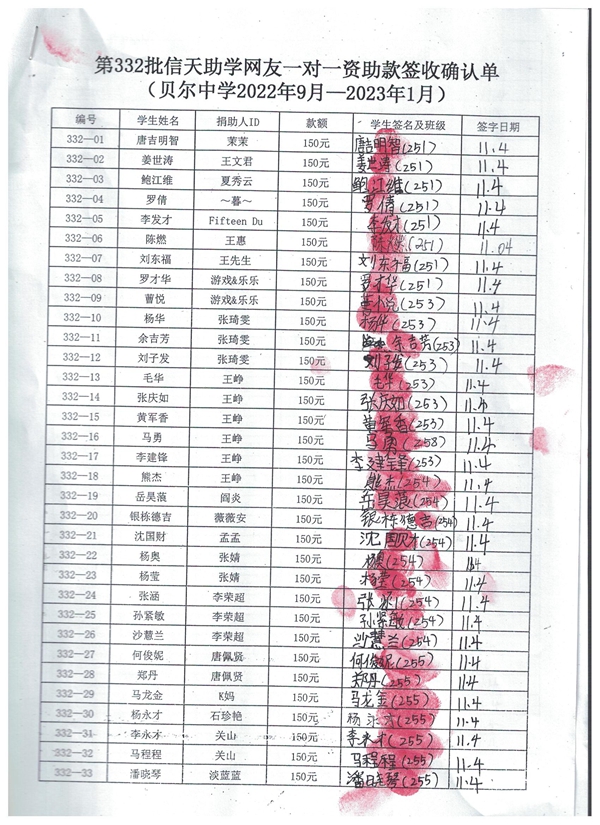 第332批信天助学网友一对一资助款签收确认单
（贝尔中学2022年9月—2023年1月）
编号 学生姓名 捐助人ID 款额 学生签名及班级 签字日期
332—01 唐吉明智 茉茉 150元 唐吉明智(251) 11.4
332—02 姜世涛 王文君 150元 姜世涛(251) 11.4
332—03 鲍江维 夏秀云 150元 鲍江维(251) 11.4
332—04 罗倩 ～暮～ 150元 罗倩(251) 11.4
332—05 李发才 Fifteen Du 150元 李发才(251) 11.4
332—06 陈燃 王惠 150元 陈燃(251) 11.04
332—07 刘东福 王先生 150元 刘东福(251) 11.4
332—08 罗才华 游戏&乐乐 150元 罗才华(251) 11.4
332—09 曹悦 游戏&乐乐 150元 (253) 11.4
332—10 杨华 张琦雯 150元 杨华(253) 11.4
332—11 余吉芳 张琦雯 150元 余吉芳(253) 11.4
332—12 刘子发 张琦雯 150元 刘子发(253) 11.4
332—13 毛华 王峥 150元 毛华(253) 11.4
332—14 张庆如 王峥 150元 张庆如(253) 11.4
332—15 黄军香 王峥 150元 黄军香(253) 11.4
332—16 马勇 王峥 150元 马勇(258) 11.4
332—17 李建锋 王峥 150元 李建锋(253) 11.4
332—18 熊杰 王峥 150元 熊杰(254) 11.4
332—19 岳昊蒗 阎炎 150元 岳昊蒗(254) 11.4
332—20 银栋德吉 薇薇安 150元 银栋德吉(254) 11.4
332—21 沈国财 孟孟 150元 沈国财(254) 11.4
332—22 杨奥 张婧 150元 杨奥(254) 11.4
332—23 杨莹 张婧 150元 杨莹(254) 11.4
332—24 张涵 李荣超 150元 张涵(254) 11.4
332—25 孙紧敏 李荣超 150元 孙紧敏(254) 11.4
332—26 沙慧兰 李荣超 150元 沙慧兰(254) 11.4
332—27 何俊妮 唐佩贤 150元 何俊妮(255) 11.4
332—28 郑丹 唐佩贤 150元 郑丹(255) 11.4
332—29 马龙金 K妈 150元 马龙金(255) 11.4
332—30 杨永才 石珍艳 150元 杨永才(255) 11.4
332—31 李永才 关山 150元 李永才(255) 11.4
332—32 马程程 关山 150元 马程程(255) 11.4
332—33 潘晓琴 淡蓝蓝 150元 潘晓琴(255) 11.4